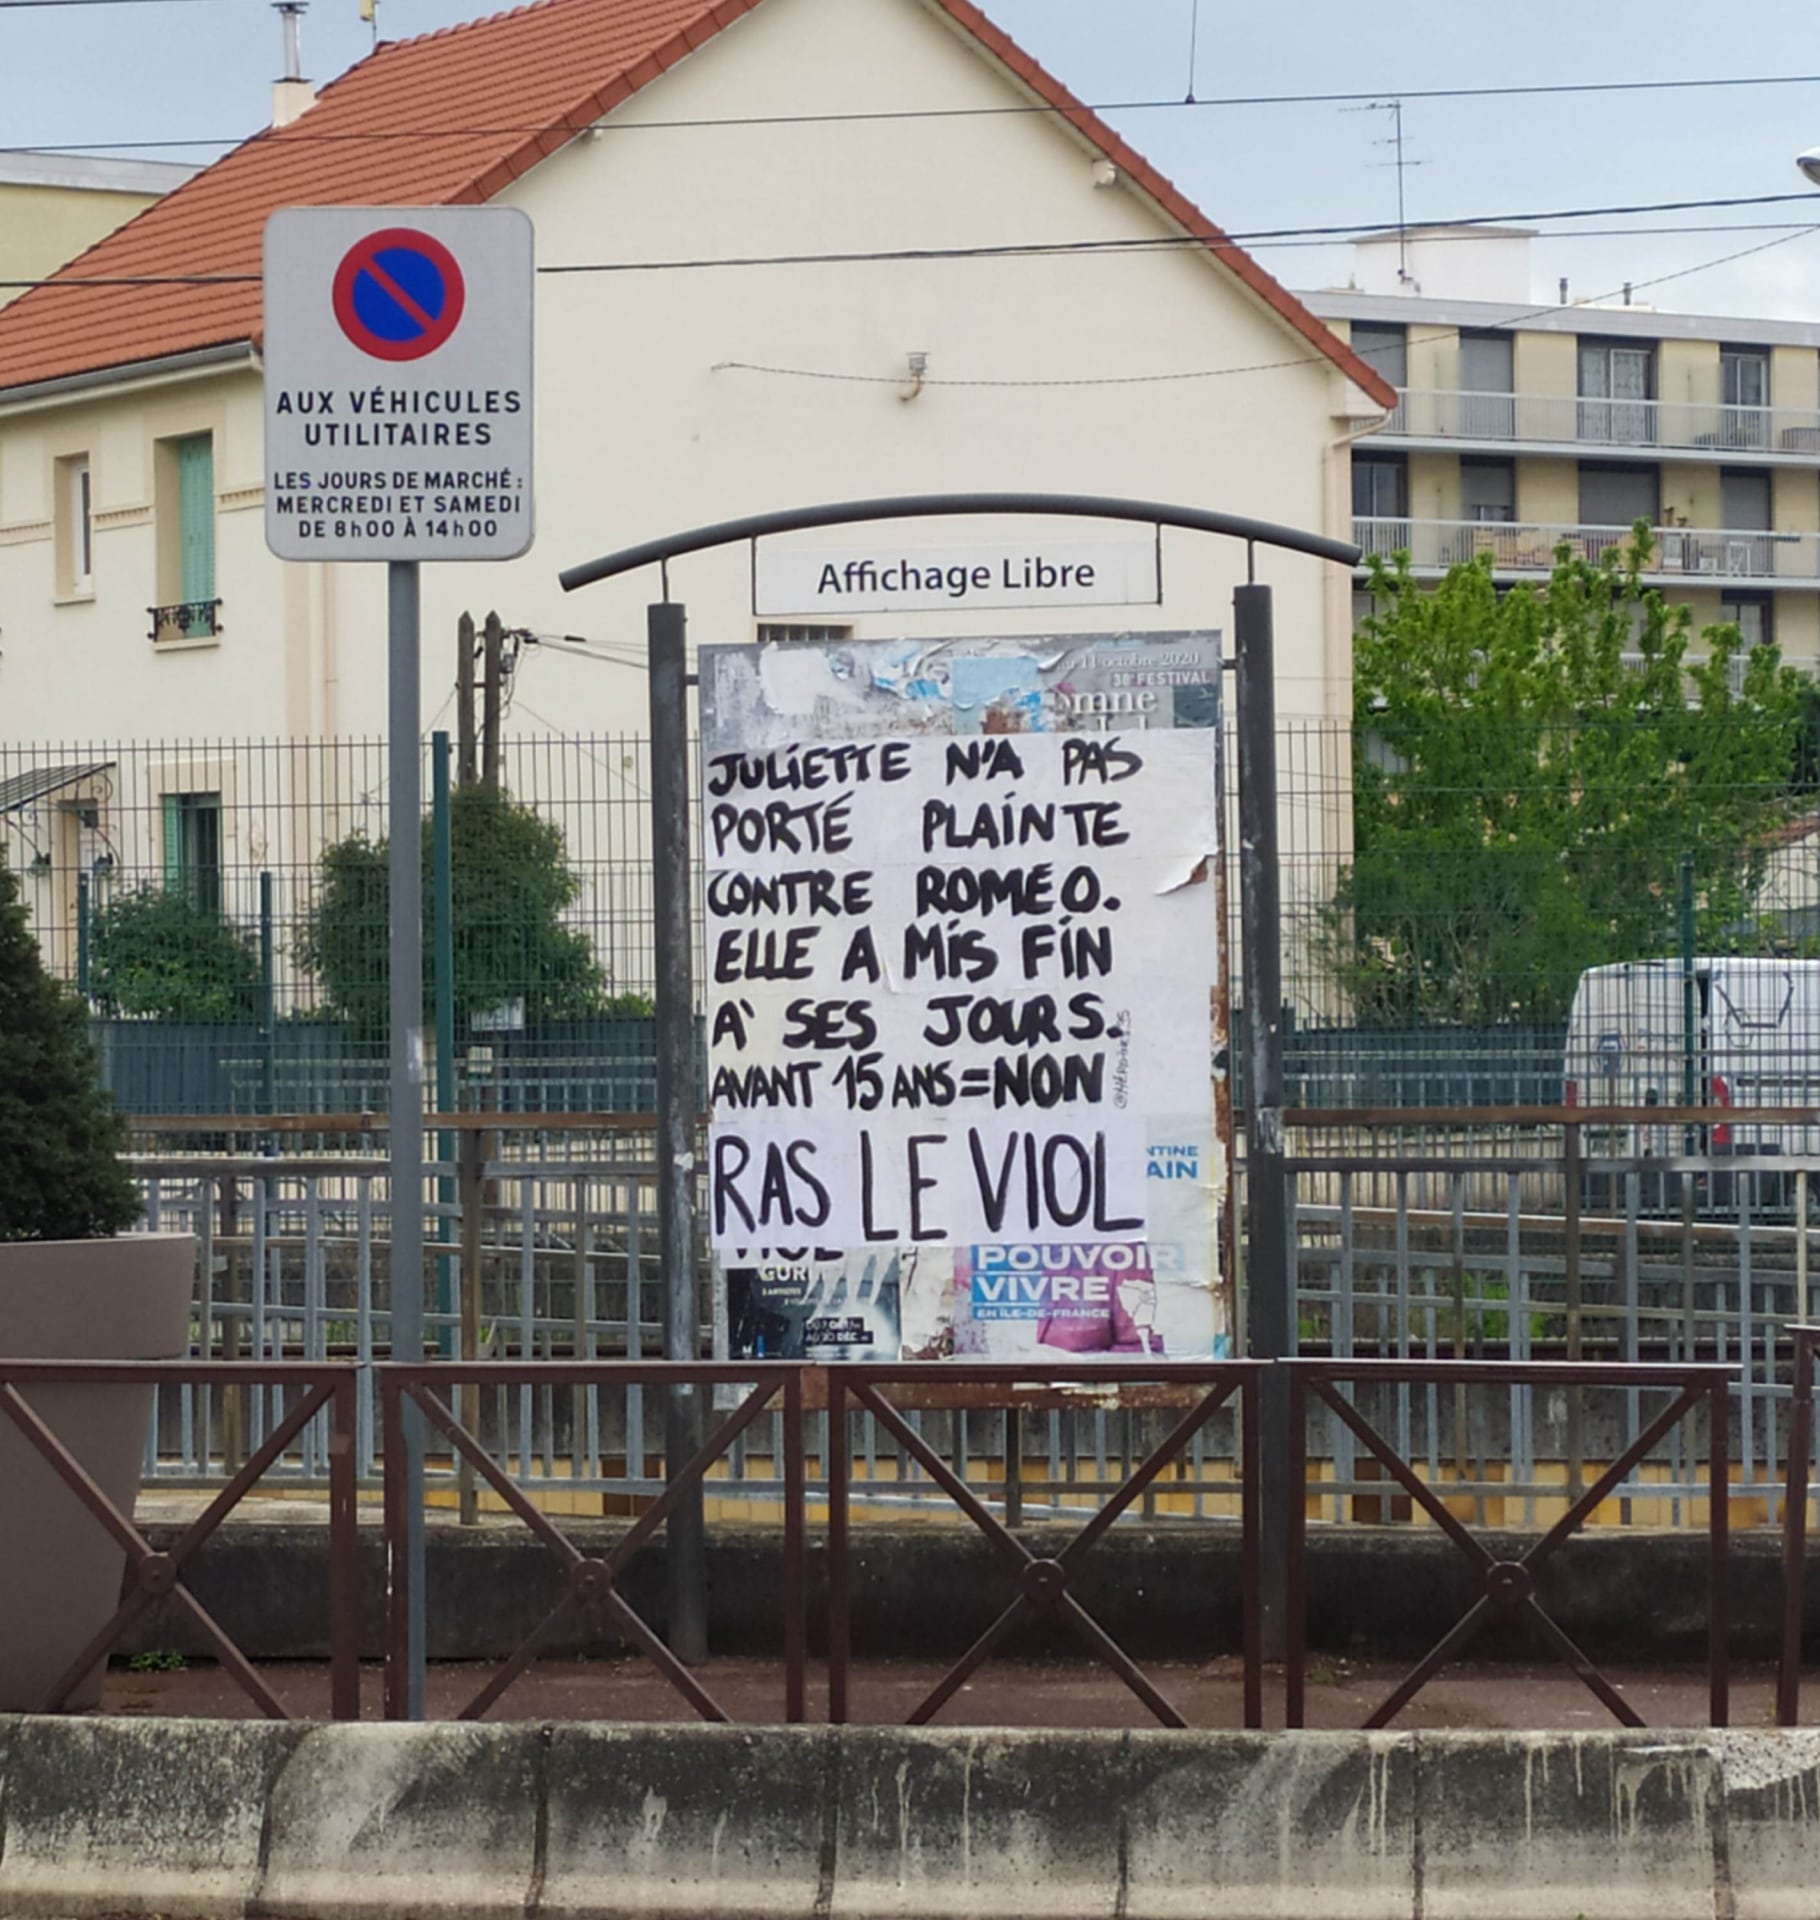 AUX VÉHICULES
UTILITAIRES
LES JOURS DE MARCHÉ :
MERCREDI ET SAMEDI
DE 8h00 À 14h00
Affichage Libre
11 octobre 2020
38e FESTIVAL
JULIETTE N'A PAS
PORTÉ PLAINTE
CONTRE ROMÉO.
ELLE A MIS FIN
À SES JOURS.
AVANT 15 ANS = NON
RAS LE VIOL
NTINE
AIN
POUVOIR
VIVRE
EN ÎLE-DE-FRANCE